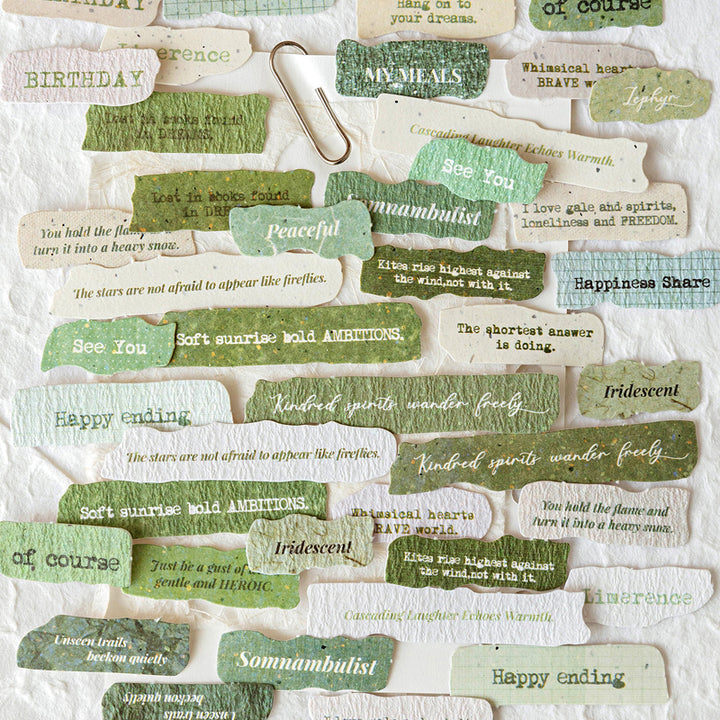 BIRTHDAY
Hang on to
your dreams.
of course
Limerence
BIRTHDAY
MY MEALS
Whimsical hearts
BRAVE
Zephyr
Lost in nooks found
in DREAMS.
Cascading Laughter Echoes Warmth.
See You
Lost in nooks found
in
Somnambulist
I love gale and spirits,
loneliness and FREEDOM.
You hold the flame
turn it into a heavy snow.
Peaceful
The stars are not afraid to appear like fireflies.
Kites rise highest against
the wind,not with it.
Happiness Share
See You
Soft sunrise hold AMBITIONS.
The shortest answer
is doing.
Iridescent
Happy ending
Kindred spirits wander freely
The stars are not afraid to appear like fireflies.
Kindred spirits wander freely
Soft sunrise hold AMBITIONS.
Whimsical hearts
BRAVE world.
You hold the flame and
turn it into a heavy snow.
of course
Iridescent
Just be a gust of
gentle and HEROIC.
Kites rise highest against
the wind,not with it.
Limerence
Cascading Laughter Echoes Warmth.
Unseen trails
beckon quietly
Somnambulist
Happy ending
Unseen trails
beckon quietly